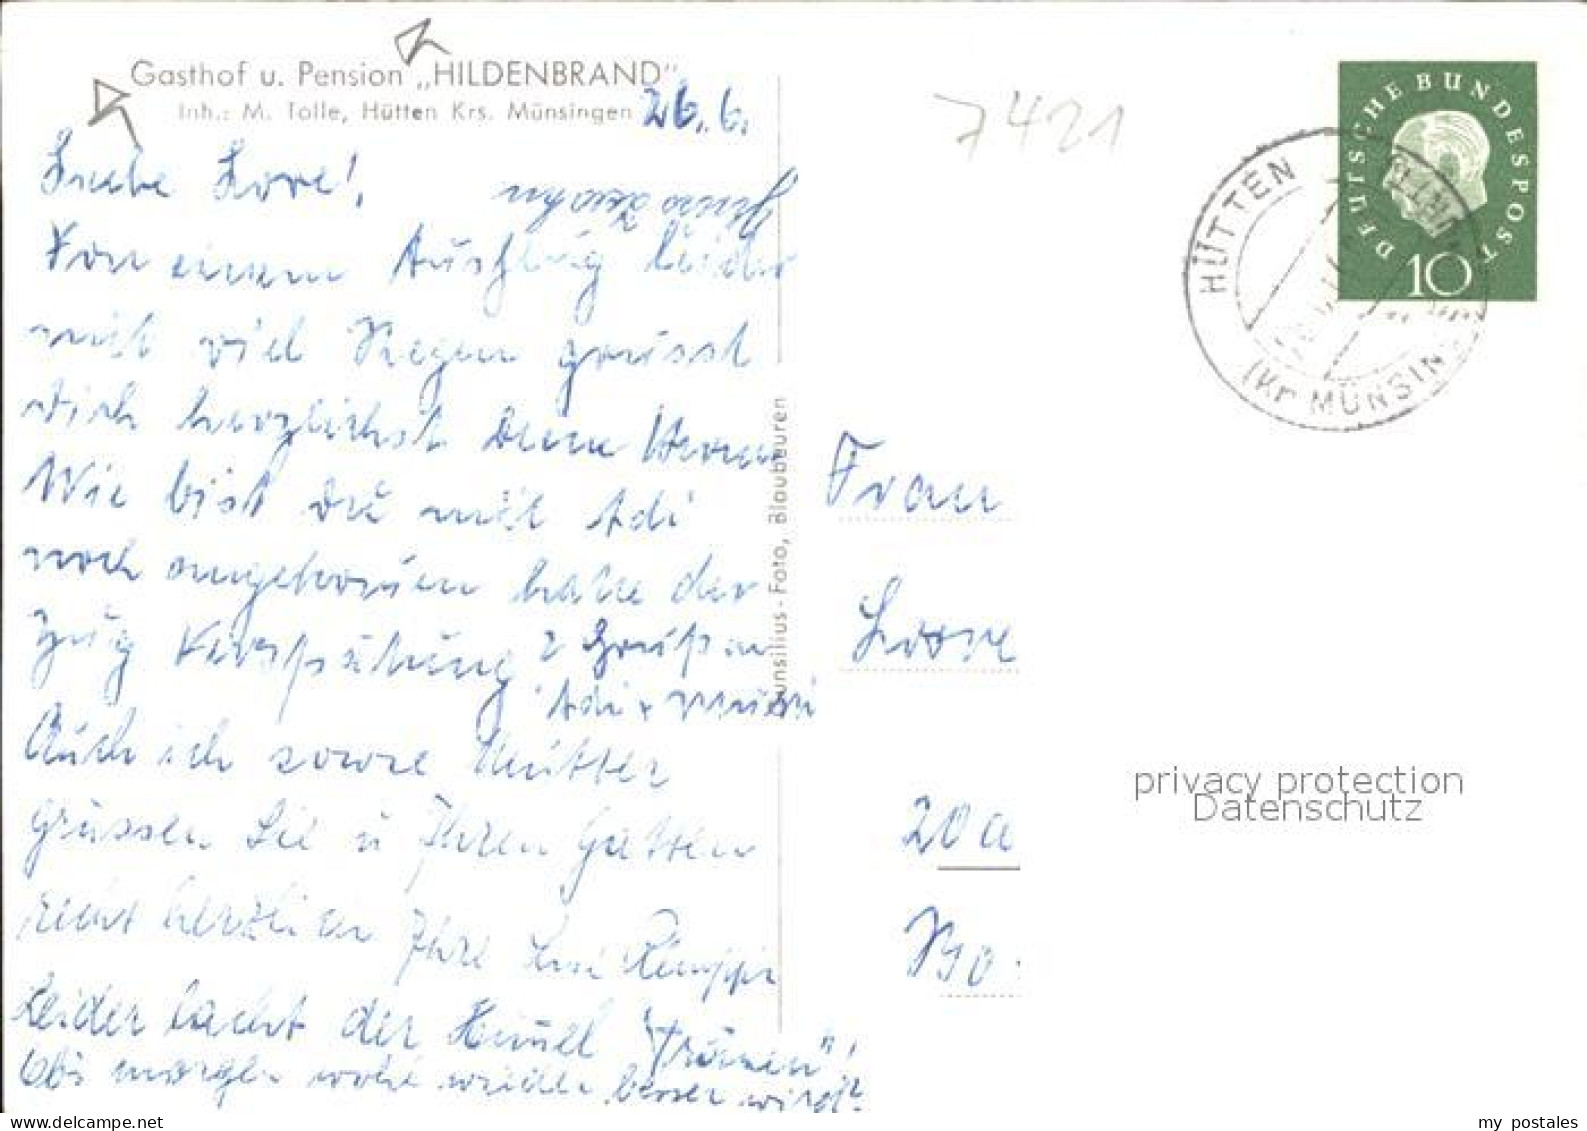 Gasthof u. Pension „HILDENBRAND"
Inh.: M. Tolle, Hütten Krs. Münsingen
26. 6.
Liebe Lore!
Von einem Ausflug leider
mit viel Regen grüsst
dich herzlichst Deine
Wie bist Du mit Adi
noch angekommen hatte der
Zug Verspätung? Grüß an
Adi +
Auch ich sowie Mutter
grüssen Sie u Ihren Gatten
recht herzlich Ihre
Leider lacht der Himmel "Tränen"!
Obs morgen wohl wieder besser wird?
unsilius-Foto, Blaubeuren
7421
DEUTSCHE BUNDESPOST
10
HÜTTEN
(Kr MÜNSIN
Frau
Lore
20a
privacy protection
Datenschutz
my postales